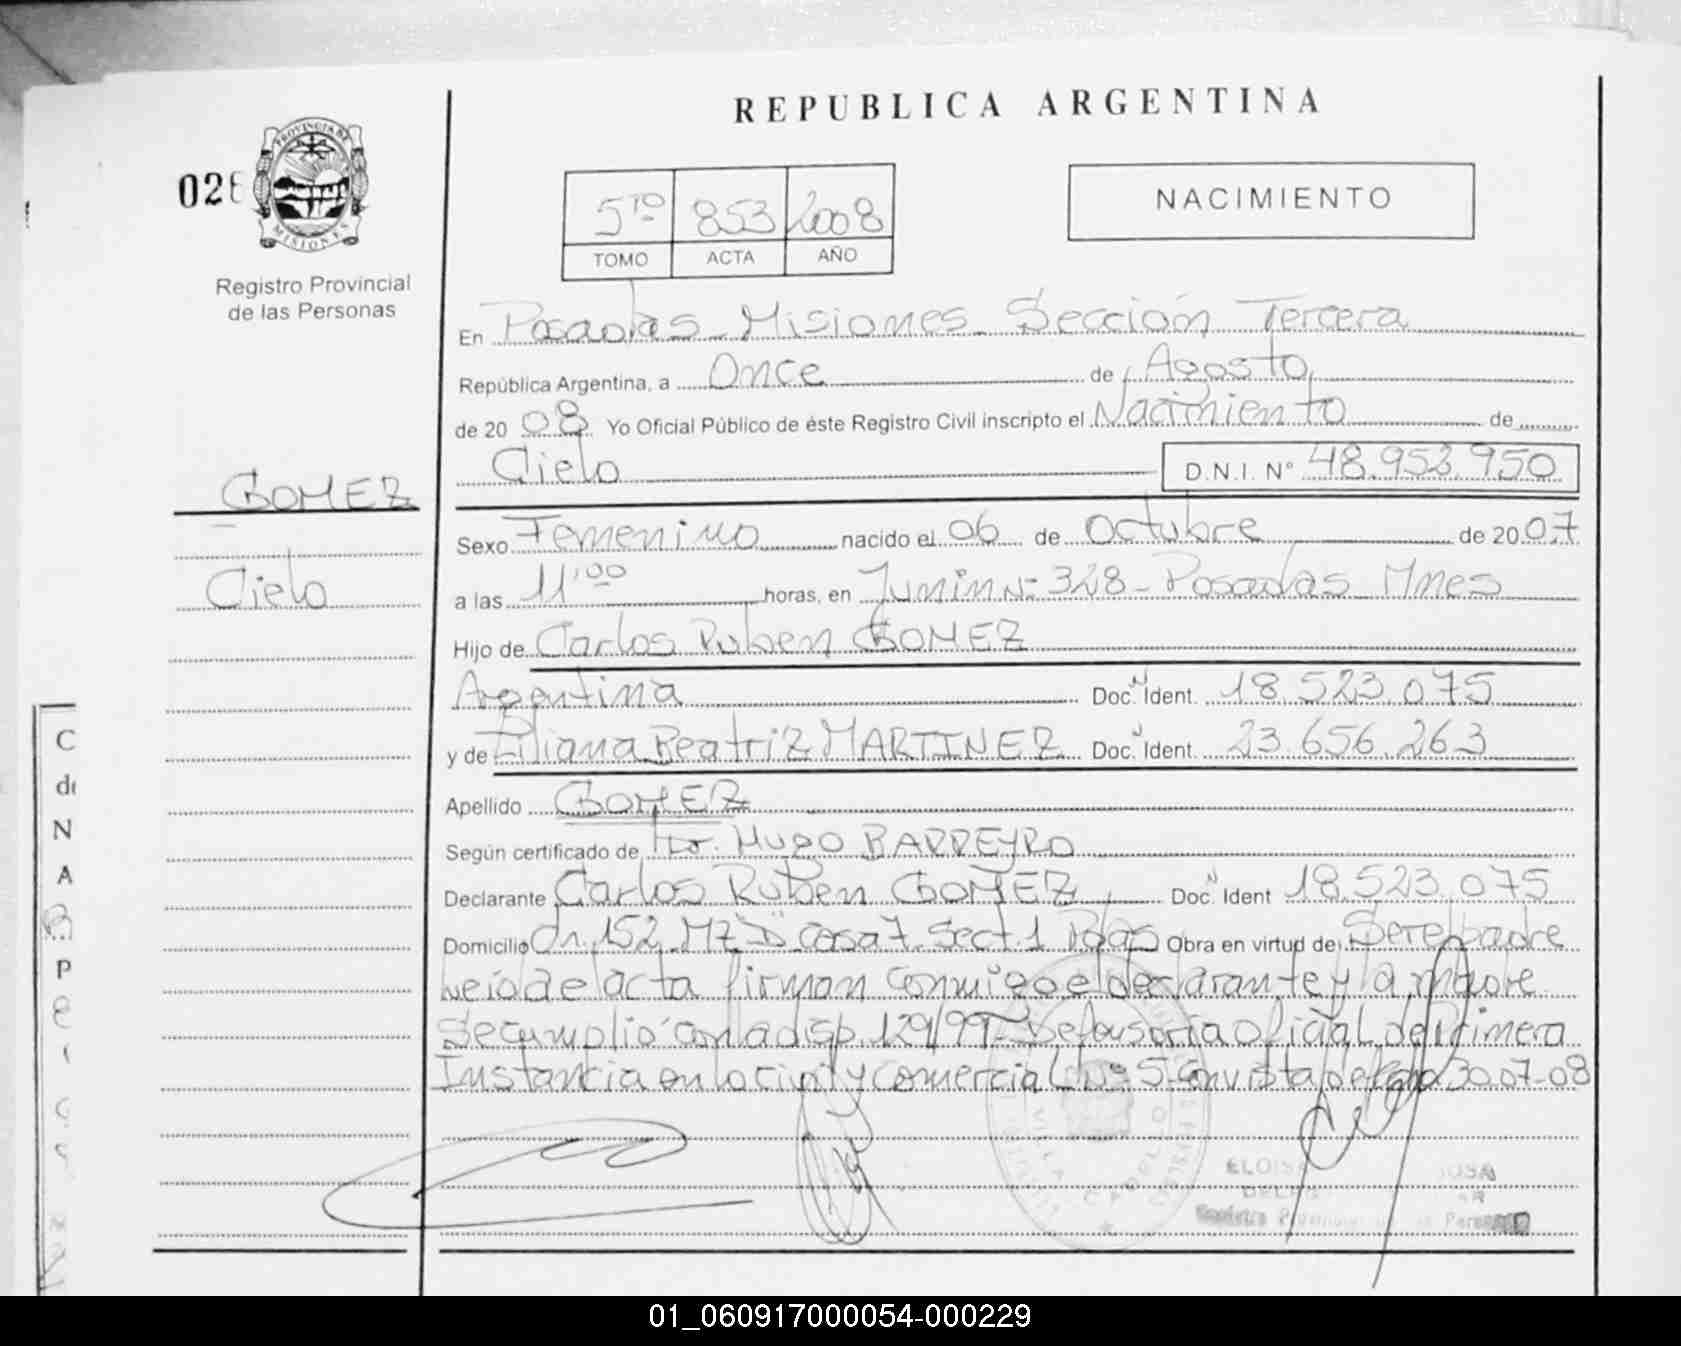 REPUBLICA ARGENTINA
028
PROVINCIA DE
MISIONES
Registro Provincial
de las Personas
5to 853 2008
TOMO ACTA AÑO
NACIMIENTO
En Posadas Misiones Sección Tercera
República Argentina, a Once de Agosto
de 2008 Yo Oficial Público de éste Registro Civil inscripto el Nacimiento de
Cielo D.N.I. N° 48.953.950
GOMEZ
Cielo
Sexo Femenino nacido el 06 de Octubre de 2007
a las 11'00 horas, en Junin N° 328 - Posadas Mnes
Hijo de Carlos Ruben GOMEZ
Argentina Doc. Ident. 18.523.075
y de Liliana Beatriz MARTINEZ Doc. Ident. 23.656.263
Apellido GOMEZ
Según certificado de Dr. HUGO BARREYRO
Declarante Carlos Ruben GOMEZ Doc. Ident 18.523.075
Domicilio Ch. 152 Mz "D" casa 7 Sect. 1 Pdas Obra en virtud de Ser el padre
leido el acta firman conmigo el declarante y la madre
Se cumplio con la disp. 129/99 - Defensoria Oficial de Primera
Instancia en lo civil y comercial N° 5 Con vista de fecha 30-07-08
VILLA CABELLO
Registro Provincial de las Personas
01_060917000054-000229